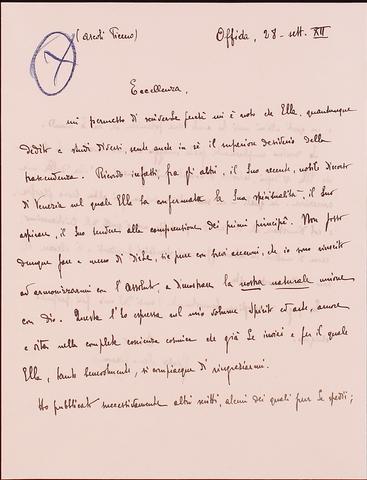 (Ascoli Piceno) Offida, 28 - sett. XII
Eccellenza,
mi permetto di scriverle perché mi è noto che Ella, quantunque
dedito a studi diversi, sente anche in sè il superiore desiderio della
trascendenza. Ricordo infatti, fra gli altri, il Suo recente, nobile Discorso
di Venezia nel quale Ella ha confermata la Sua spiritualità, il Suo
aspirare, il Suo tendere alla comprensione dei primi principî. Non posso
dunque fare a meno di dirle, sia pure con brevi accenni, che io sono riuscito
ad armonizzarmi con l'assoluto a dimostrare la nostra naturale unione
con Dio. Questa l'ho espressa nel mio volume Spirito ed arte, amore
e vita nella completa coscienza cosmica che già Le inviai e per il quale
Ella, tanto benevolmente, si compiacque di ringraziarmi.
Ho pubblicato successivamente altri scritti, alcuni dei quali pure Le spedii;